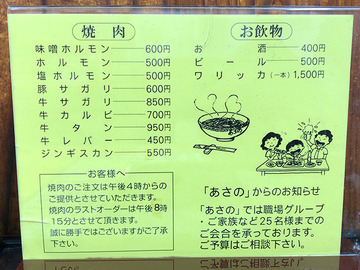 焼肉
味噌ホルモン ― 600円
ホルモン ― 500円
塩ホルモン ― 500円
豚サガリ ― 600円
牛サガリ ― 850円
牛カルビ ― 700円
牛タン ― 950円
牛レバー ― 450円
ジンギスカン ― 550円
お客様へ
焼肉のご注文は午後4時からの
ご提供とさせていただきます。
焼肉のラストオーダーは午後8時
15分とさせて頂きます。
誠に勝手ではございますがご了
承下さい。
お飲物
お酒 ― 400円
ビール ― 500円
ワリッカ(一本) 1,500円
「あさの」からのお知らせ
「あさの」では職場グループ
・ご家族など25名様までの
ご会合を承っております。
ご予算はご相談下さい。